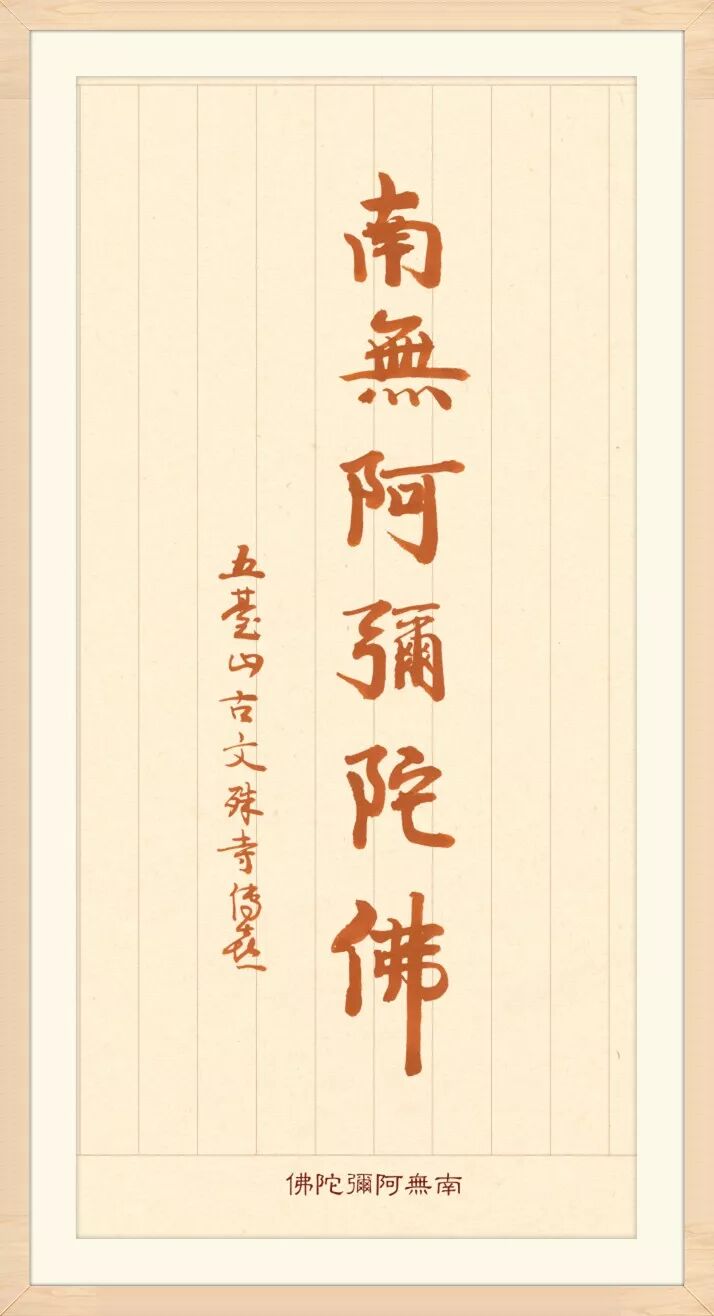 南無阿彌陀佛
五臺山古文殊寺傳喜
南無阿彌陀佛